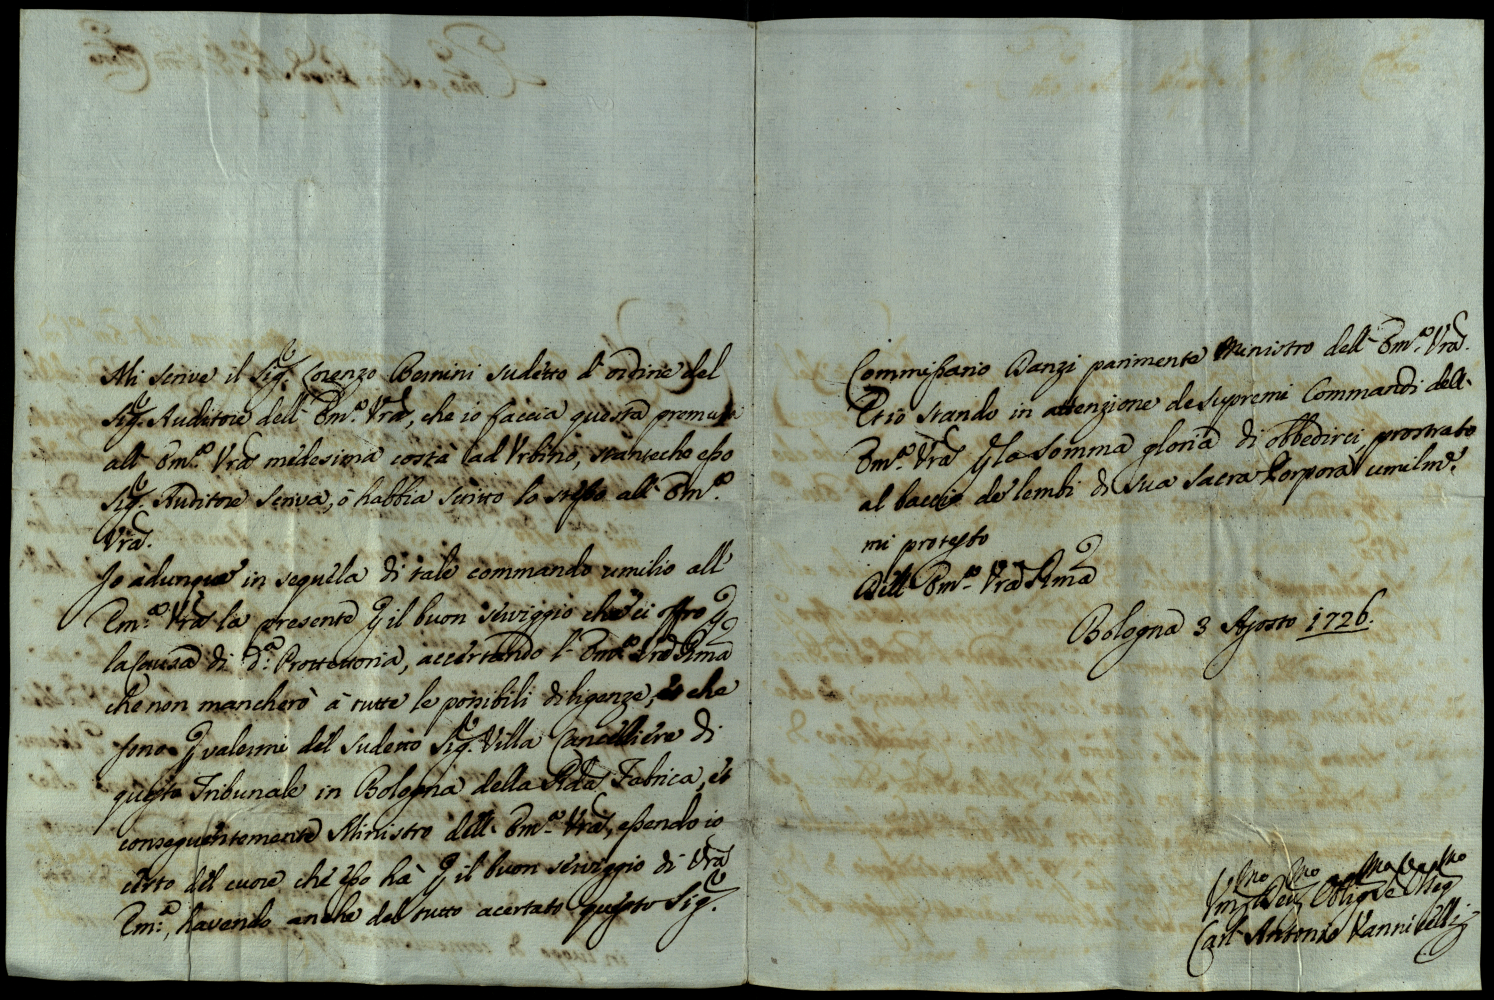 Mi scrive il Sig.e Lorenzo Bernini sudetto d'ordine del
Sig.e Auditore dell' Em.a Vra, che io faccia questa premura
all' Em.a Vra medesima costà ad Urbino, stanteche esso
Sig.e Auditore scriva, ò habbia scritto lo stesso all' Em.a
Vra.
Jo adunque in sequela di tale commando umilio all'
Em.a Vra la presente p il buon serviggio che ci offro p
la causa di d.a Prottettoria, accertando l' Em.a Vra Rma
che non mancherò à tutte le possibili diligenze, et che
sono p valermi del sudetto Sig.e Villa Cancelliere di
questo Tribunale in Bologna della Rda Fabrica, et
conseguentemente Ministro dell' Em.a Vra, essendo io
certo del cuore che esso hà p il buon serviggio di Vra
Em.a, havendo anche del tutto acertato questo Sig.e
Commissario Danzi parimente Ministro dell' Em.a Vra.
Et io stando in attenzione de supremi Commandi dell'
Em.a Vra p la somma gloria di obbedirci, prostrato
al baccio de lembi di sua sacra Porpora umilme.
mi protesto
Dell' Em.a Vra Rma
Bologna 3 Agosto 1726.
Vmo Devmo Obligmo Serre
Carl' Antonio Vannicelli